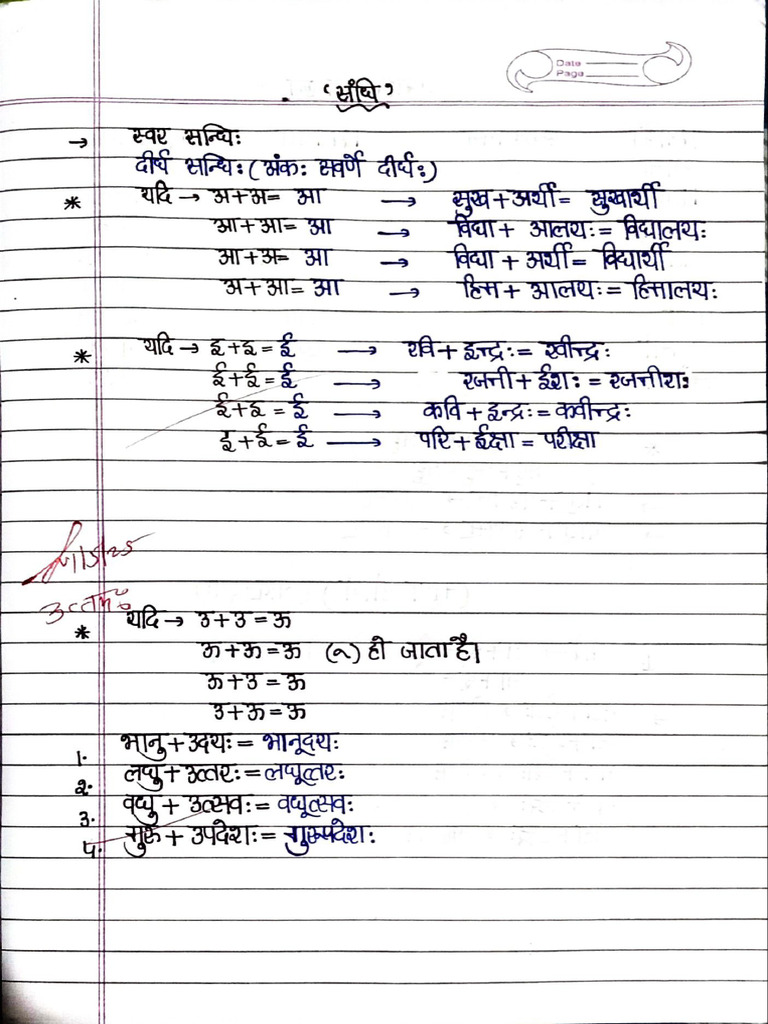 Date
Page
‘संधि’
→ स्वर सन्धिः
दीर्घ सन्धिः (अंकः सवर्णे दीर्घः)
* यदि → अ+अ= आ → सुख+अर्थी= सुखार्थी
आ+आ= आ → विद्या+ आलयः= विद्यालयः
आ+अ= आ → विद्या + अर्थी= विद्यार्थी
अ+आ= आ → हिम+ आलयः= हिमालयः
* यदि → इ+इ = ई → रवि+इन्द्रः= रवीन्द्रः
ई+ई=ई → रजनी+ईशः = रजनीशः
ई+इ = ई → कवि+इन्द्रः=कवीन्द्रः
इ+ई=ई → परि+ईक्षा=परीक्षा
उत्तम
* यदि → उ+उ=ऊ
ऊ+ऊ=ऊ (ू) हो जाता है।
ऊ+उ=ऊ
उ+ऊ=ऊ
1. भानु+उदयः= भानूदयः
2. लघु+उत्तरः=लघूत्तरः
3. वधु+ उत्सवः= वधूत्सवः
4. गुरु + उपदेशः= गुरूपदेशः